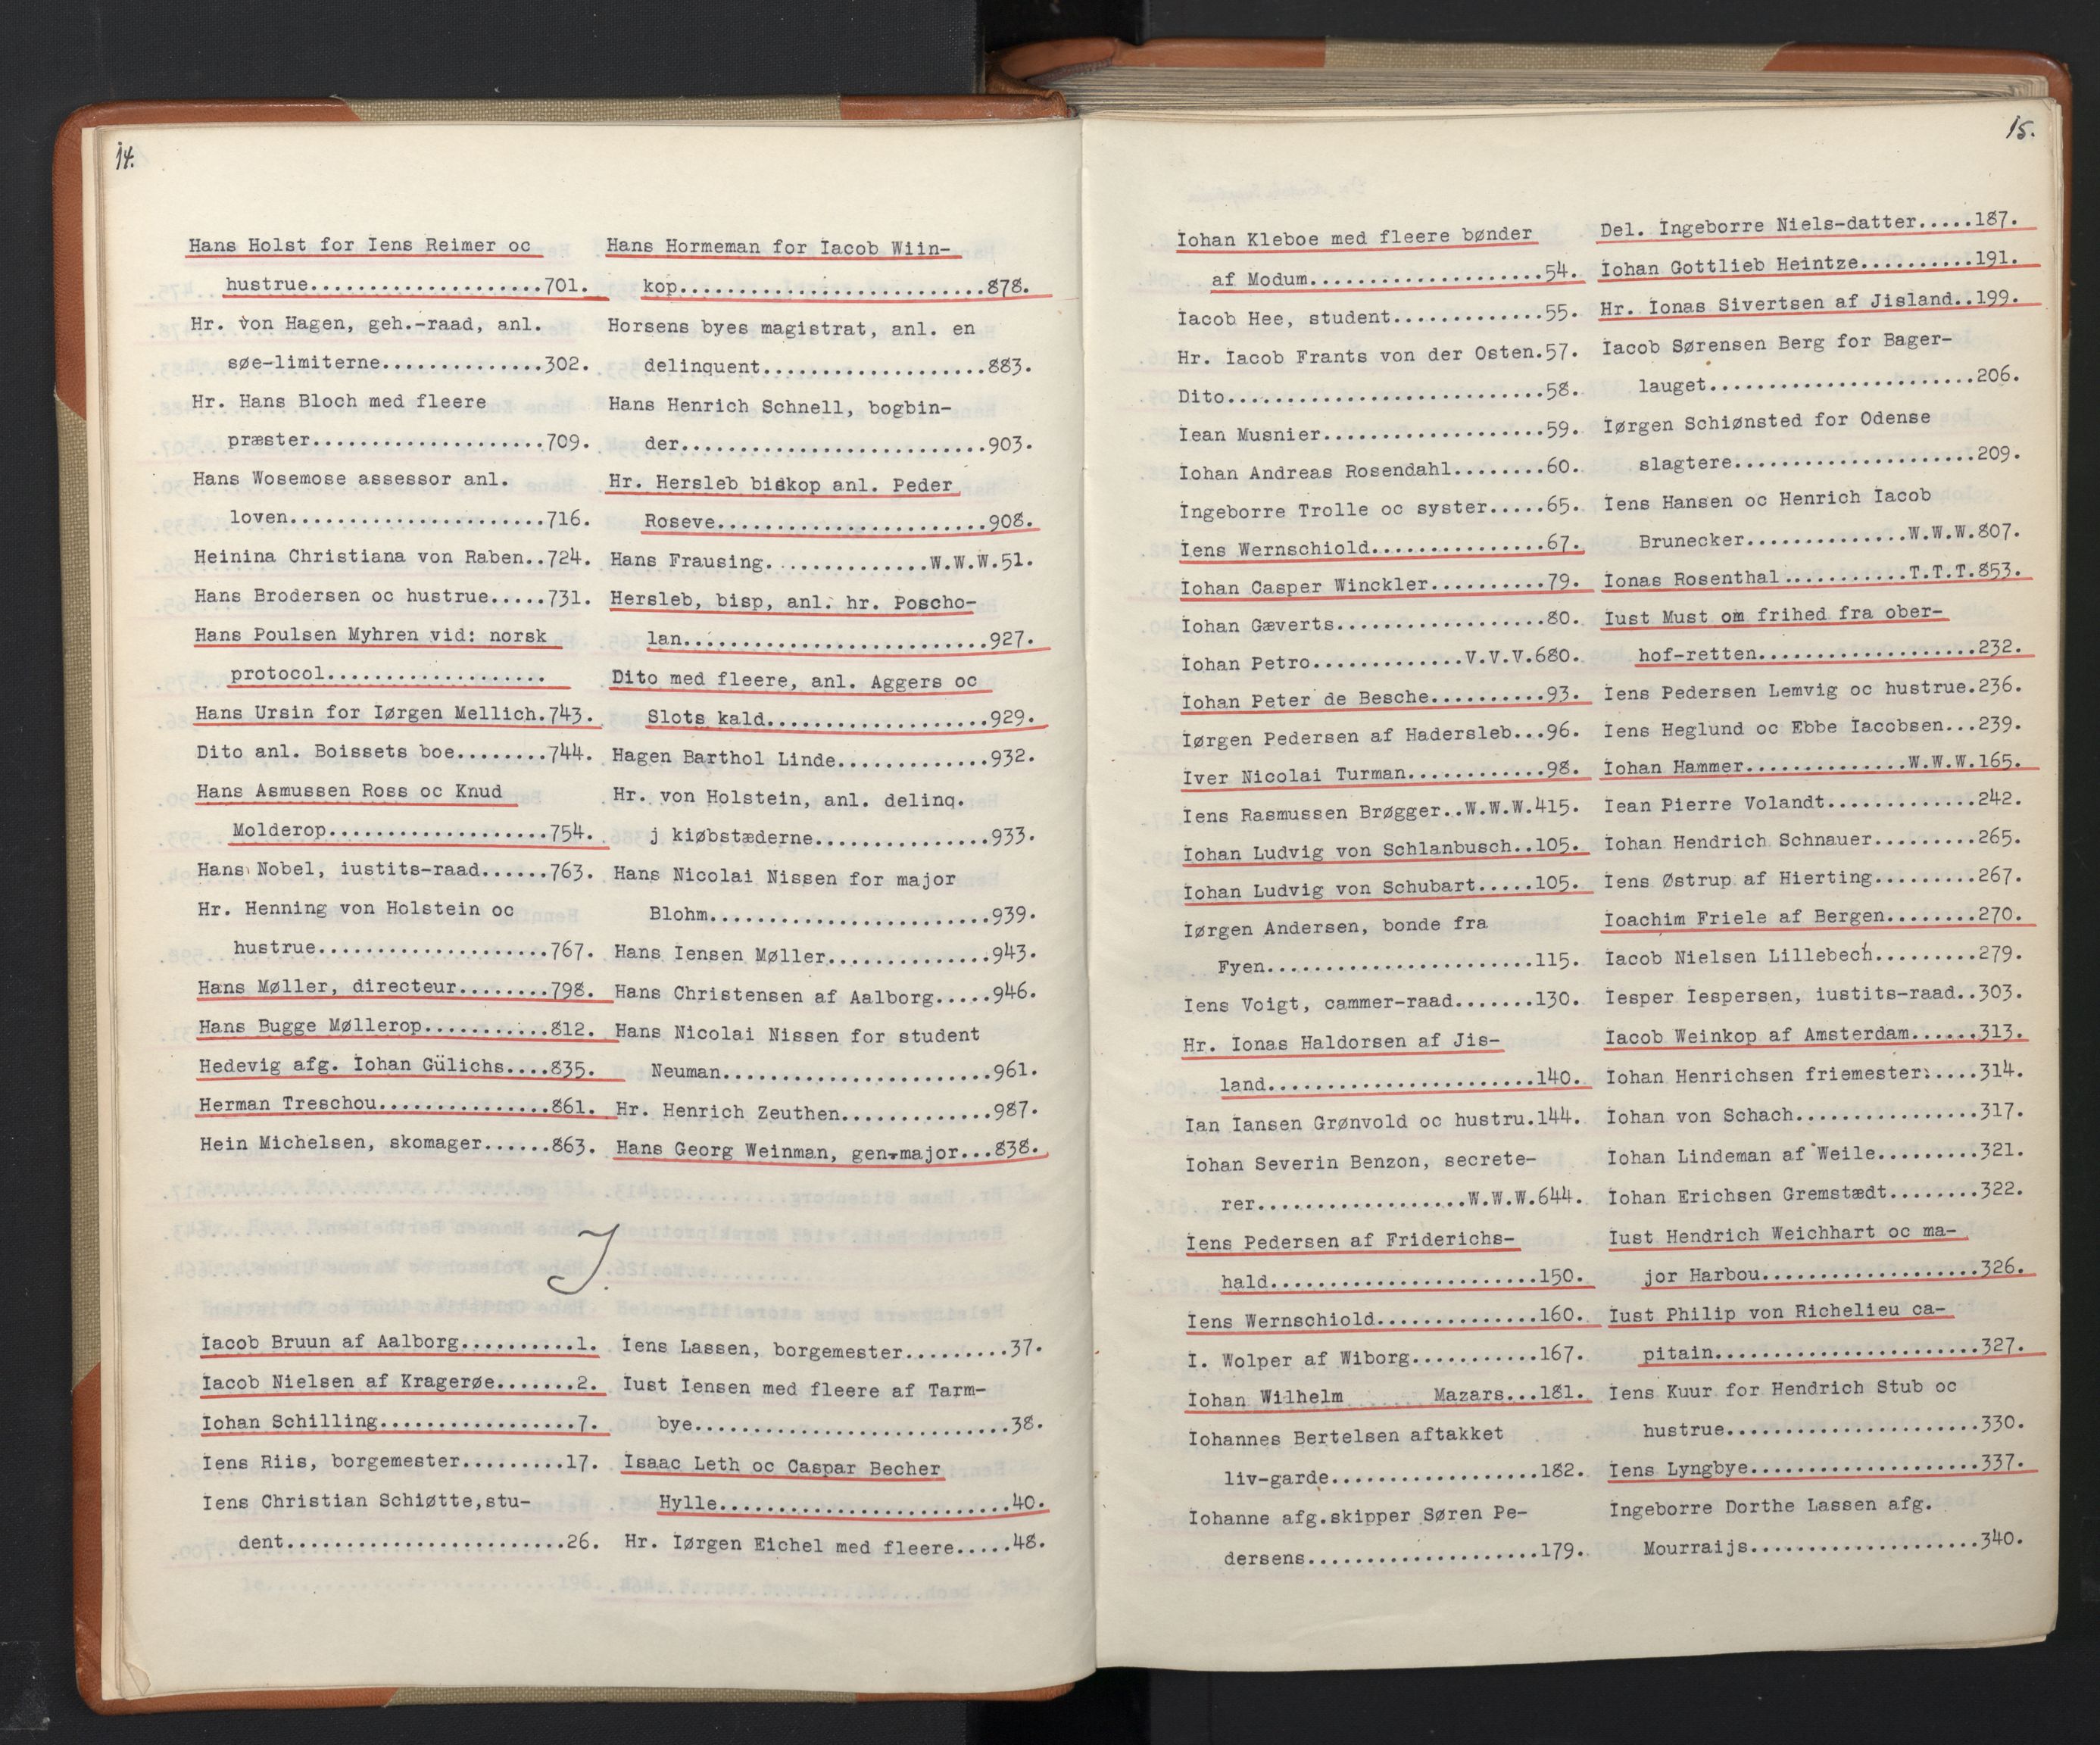 14.
Hans Holst for Iens Reimer oc
hustrue.....................701.
Hr. von Hagen, geh.-raad, anl.
søe-limiterne...............302.
Hr. Hans Bloch med fleere
præster.....................709.
Hans Wosemose assessor anl.
loven.......................716.
Heinina Christiana von Raben..724.
Hans Brodersen oc hustrue.....731.
Hans Poulsen Myhren vid: norsk
protocol....................
Hans Ursin for Iørgen Mellich.743.
Dito anl. Boissets boe........744.
Hans Asmussen Ross oc Knud
Molderop....................754.
Hans Nobel, iustits-raad......763.
Hr. Henning von Holstein oc
hustrue.....................767.
Hans Møller, directeur........798.
Hans Bugge Møllerop...........812.
Hedevig afg. Iohan Gülichs....835.
Herman Treschou...............861.
Hein Michelsen, skomager......863.
Hans Hormeman for Iacob Wiin-
kop...........................878.
Horsens byes magistrat, anl. en
delinquent....................883.
Hans Henrich Schnell, bogbin-
der...........................903.
Hr. Hersleb biskop anl. Peder
Roseve........................908.
Hans Frausing...............W.W.W.51.
Hersleb, bisp, anl. hr. Poscho-
lan...........................927.
Dito med fleere, anl. Aggers oc
Slots kald....................929.
Hagen Barthol Linde.............932.
Hr. von Holstein, anl. delinq.
j kiøbstæderne................933.
Hans Nicolai Nissen for major
Blohm.........................939.
Hans Iensen Møller..............943.
Hans Christensen af Aalborg.....946.
Hans Nicolai Nissen for student
Neuman........................961.
Hr. Henrich Zeuthen.............987.
Hans Georg Weinman, gen-major...838.
J.
Iacob Bruun af Aalborg..........1.
Iacob Nielsen af Kragerøe.......2.
Iohan Schilling.................7.
Iens Riis, borgemester.........17.
Iens Christian Schiøtte,stu-
dent.........................26.
Iens Lassen, borgemester.........37.
Iust Iensen med fleere af Tarm-
bye............................38.
Isaac Leth oc Caspar Becher
Hylle..........................40.
Hr. Iørgen Eichel med fleere.....48.
15.
Iohan Kleboe med fleere bønder
af Modum.....................54.
Iacob Hee, student.............55.
Hr. Iacob Frants von der Osten.57.
Dito............................58.
Iean Musnier...................59.
Iohan Andreas Rosendahl........60.
Ingeborre Trolle oc syster.....65.
Iens Wernschiold...............67.
Iohan Casper Winckler..........79.
Iohan Gæverts..................80.
Iohan Petro.............V.V.V.680.
Iohan Peter de Besche..........93.
Iørgen Pedersen af Hadersleb...96.
Iver Nicolai Turman............98.
Iens Rasmussen Brøgger..W.W.W.415.
Iohan Ludvig von Schlanbusch..105.
Iohan Ludvig von Schubart.....105.
Iørgen Andersen, bonde fra
Fyen........................115.
Iens Voigt, cammer-raad.......130.
Hr. Ionas Haldorsen af Jis-
land........................140.
Ian Iansen Grønvold oc hustru.144.
Iohan Severin Benzon, secrete-
rer...................W.W.W.644.
Iens Pedersen af Friderichs-
hald........................150.
Iens Wernschiold..............160.
I. Wolper af Wiborg...........167.
Iohan Wilhelm Mazars...181.
Iohannes Bertelsen aftakket
liv-garde...................182.
Iohanne afg.skipper Søren Pe-
dersens.....................179.
Del. Ingeborre Niels-datter.....187.
Iohan Gottlieb Heintze..........191.
Hr. Ionas Sivertsen af Jisland..199.
Iacob Sørensen Berg for Bager-
lauget........................206.
Iørgen Schiønsted for Odense
slagtere......................209.
Iens Hansen oc Henrich Iacob
Brunecker..............W.W.W.807.
Ionas Rosenthal...........T.T.T.853.
Iust Must om frihed fra ober-
hof-retten....................232.
Iens Pedersen Lemvig oc hustrue.236.
Iens Heglund oc Ebbe Iacobsen...239.
Iohan Hammer..............W.W.W.165.
Iean Pierre Volandt.............242.
Iohan Hendrich Schnauer.........265.
Iens Østrup af Hierting.........267.
Ioachim Friele af Bergen........270.
Iacob Nielsen Lillebech.........279.
Iesper Iespersen, iustits-raad..303.
Iacob Weinkop af Amsterdam......313.
Iohan Henrichsen friemester:....314.
Iohan von Schach................317.
Iohan Lindeman af Weile.........321.
Iohan Erichsen Gremstædt........322.
Iust Hendrich Weichhart oc ma-
jor Harbou....................326.
Iust Philip von Richelieu ca-
pitain........................327.
Iens Kuur for Hendrich Stub oc
hustrue.......................330.
Iens Lyngbye....................337.
Ingeborre Dorthe Lassen afg.
Mourraijs.....................340.